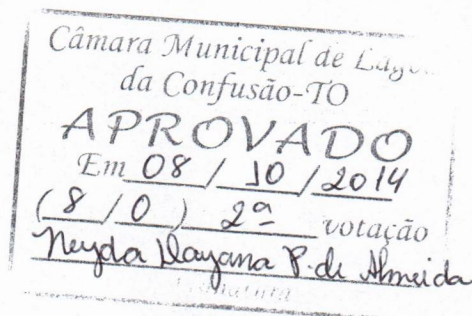 Câmara Municipal de Lago
da Confusão-TO
APROVADO
Em 08 / 10 / 2014
( 8 / 0 ) 2ª votação
Neyda Dayana P. de Almeida
Assinatura